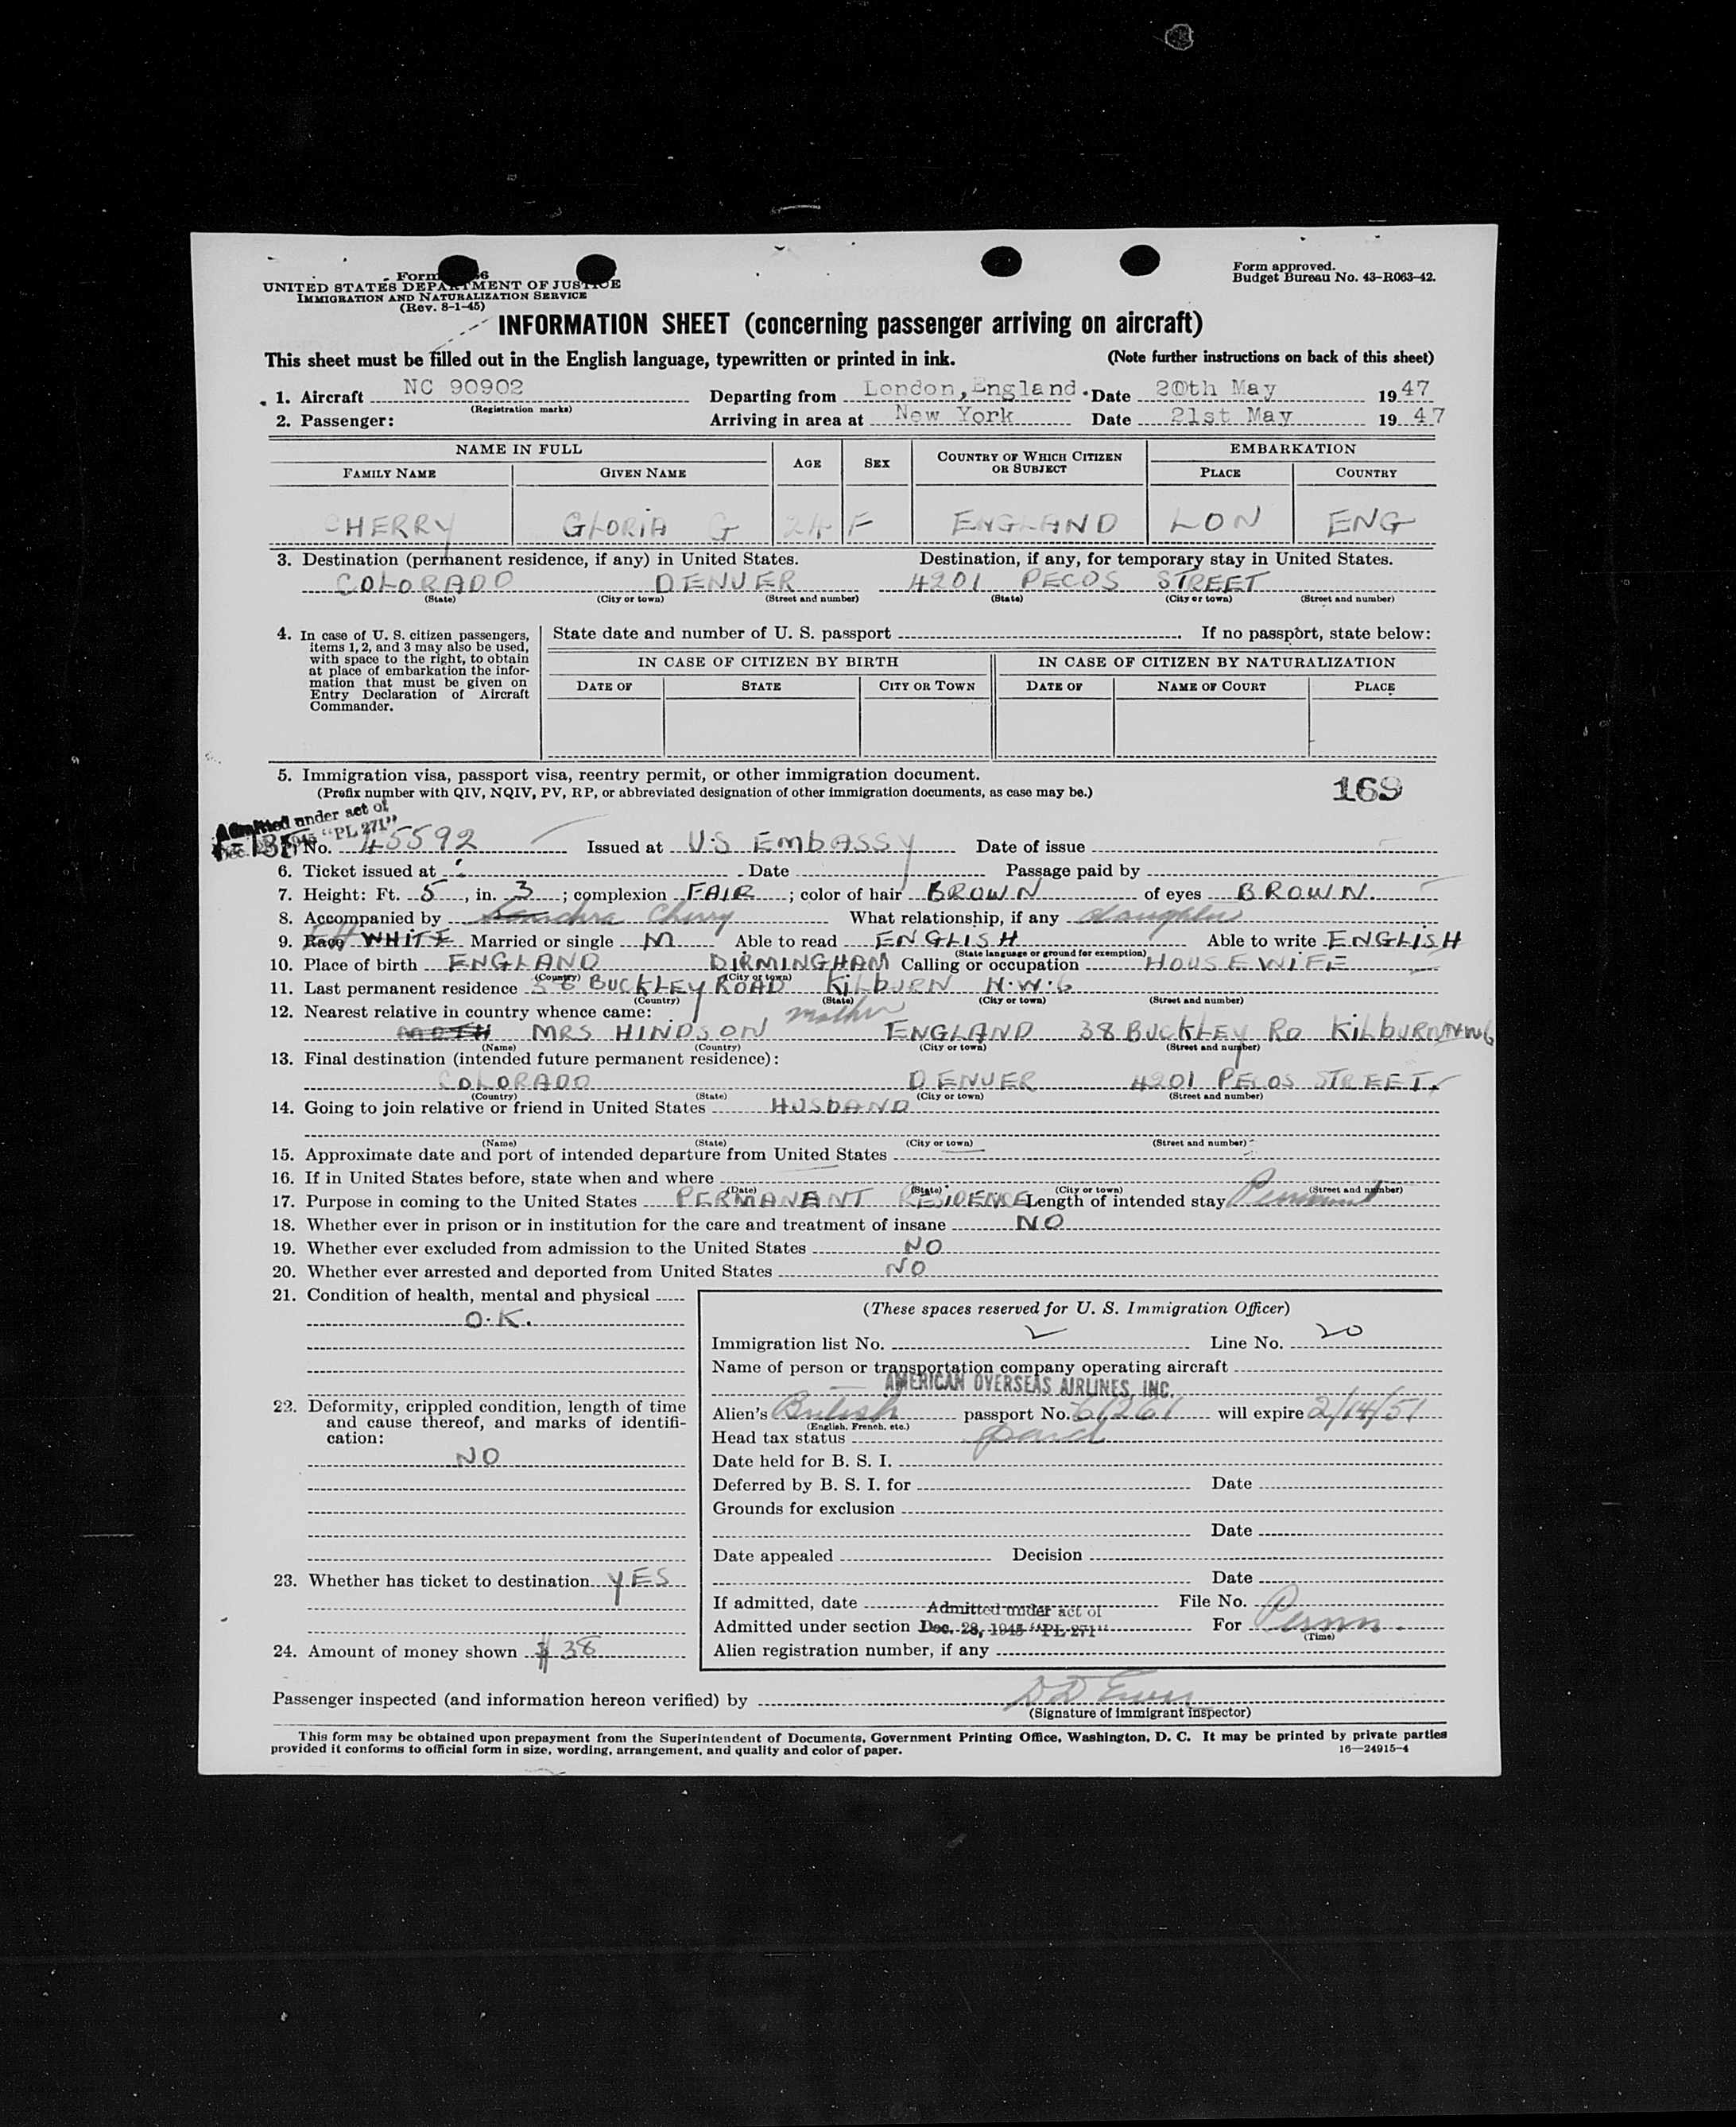 Form 6
UNITED STATES DEPARTMENT OF JUSTICE
IMMIGRATION AND NATURALIZATION SERVICE
(Rev. 8-1-45)
Form approved.
Budget Bureau No. 43-R063-42.
INFORMATION SHEET (concerning passenger arriving on aircraft)
This sheet must be filled out in the English language, typewritten or printed in ink. (Note further instructions on back of this sheet)
1. Aircraft NC 90902 Departing from London, England. Date 20th May 1947
(Registration marks)
2. Passenger: Arriving in area at New York Date 21st May 1947
NAME IN FULL AGE SEX COUNTRY OF WHICH CITIZEN OR SUBJECT EMBARKATION
FAMILY NAME GIVEN NAME PLACE COUNTRY
CHERRY GLORIA G 24 F ENGLAND LON ENG
3. Destination (permanent residence, if any) in United States. Destination, if any, for temporary stay in United States.
COLORADO DENVER 4201 PECOS STREET
(State) (City or town) (Street and number) (State) (City or town) (Street and number)
4. In case of U. S. citizen passengers, items 1, 2, and 3 may also be used, with space to the right, to obtain at place of embarkation the information that must be given on Entry Declaration of Aircraft Commander.
State date and number of U. S. passport If no passport, state below:
IN CASE OF CITIZEN BY BIRTH IN CASE OF CITIZEN BY NATURALIZATION
DATE OF STATE CITY OR TOWN DATE OF NAME OF COURT PLACE
5. Immigration visa, passport visa, reentry permit, or other immigration document.
(Prefix number with QIV, NQIV, PV, RP, or abbreviated designation of other immigration documents, as case may be.)
169
Admitted under act of
Dec. 28, 1945 "PL 271"
No. 45592 Issued at U.S EMBASSY Date of issue
6. Ticket issued at Date Passage paid by
7. Height: Ft. 5, in. 3; complexion FAIR; color of hair BROWN of eyes BROWN.
8. Accompanied by Saundra Cherry What relationship, if any daughter
9. Race WHITE Married or single M Able to read ENGLISH Able to write ENGLISH
(State language or ground for exemption)
10. Place of birth ENGLAND BIRMINGHAM Calling or occupation HOUSEWIFE
(Country) (City or town)
11. Last permanent residence 38 BUCKLEY ROAD KILBURN N.W.6
(Country) (State) (City or town) (Street and number)
12. Nearest relative in country whence came: mother
MOTH MRS HINDSON ENGLAND 38 BUCKLEY RD KILBURN NW6
(Name) (Country) (City or town) (Street and number)
13. Final destination (intended future permanent residence):
COLORADO DENVER 4201 PECOS STREET.
(Country) (State) (City or town) (Street and number)
14. Going to join relative or friend in United States HUSBAND
(Name) (State) (City or town) (Street and number)
15. Approximate date and port of intended departure from United States
16. If in United States before, state when and where
(Date) (State) (City or town) (Street and number)
17. Purpose in coming to the United States PERMANANT RESIDENCE Length of intended stay Permanent
18. Whether ever in prison or in institution for the care and treatment of insane NO
19. Whether ever excluded from admission to the United States NO
20. Whether ever arrested and deported from United States NO
21. Condition of health, mental and physical
O.K.
22. Deformity, crippled condition, length of time and cause thereof, and marks of identification:
NO
23. Whether has ticket to destination YES
24. Amount of money shown $38
(These spaces reserved for U. S. Immigration Officer)
Immigration list No. 2 Line No. 20
Name of person or transportation company operating aircraft
AMERICAN OVERSEAS AIRLINES, INC.
Alien's British passport No. 61261 will expire 2/14/51
(English, French, etc.)
Head tax status paid
Date held for B. S. I.
Deferred by B. S. I. for Date
Grounds for exclusion
Date
Date appealed Decision
Date
If admitted, date File No.
Admitted under act of
Admitted under section Dec. 28, 1945 "PL 271" For Perm.
(Time)
Alien registration number, if any
Passenger inspected (and information hereon verified) by
(Signature of immigrant inspector)
This form may be obtained upon prepayment from the Superintendent of Documents, Government Printing Office, Washington, D. C. It may be printed by private parties
provided it conforms to official form in size, wording, arrangement, and quality and color of paper. 16—24915-4